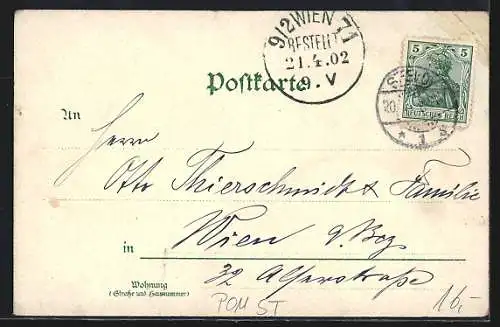 9/2 WIEN 71
BESTELLT
21.4.02
9.V
Postkarte
5 5
DEUTSCHES REICH
20.
* 1 s.
An
Herrn
Otto Thierschmidt & Familie
in Wien 9. Bez.
32 Alserstraße
Wohnung
(Straße und Hausnummer)
POM ST
16,-